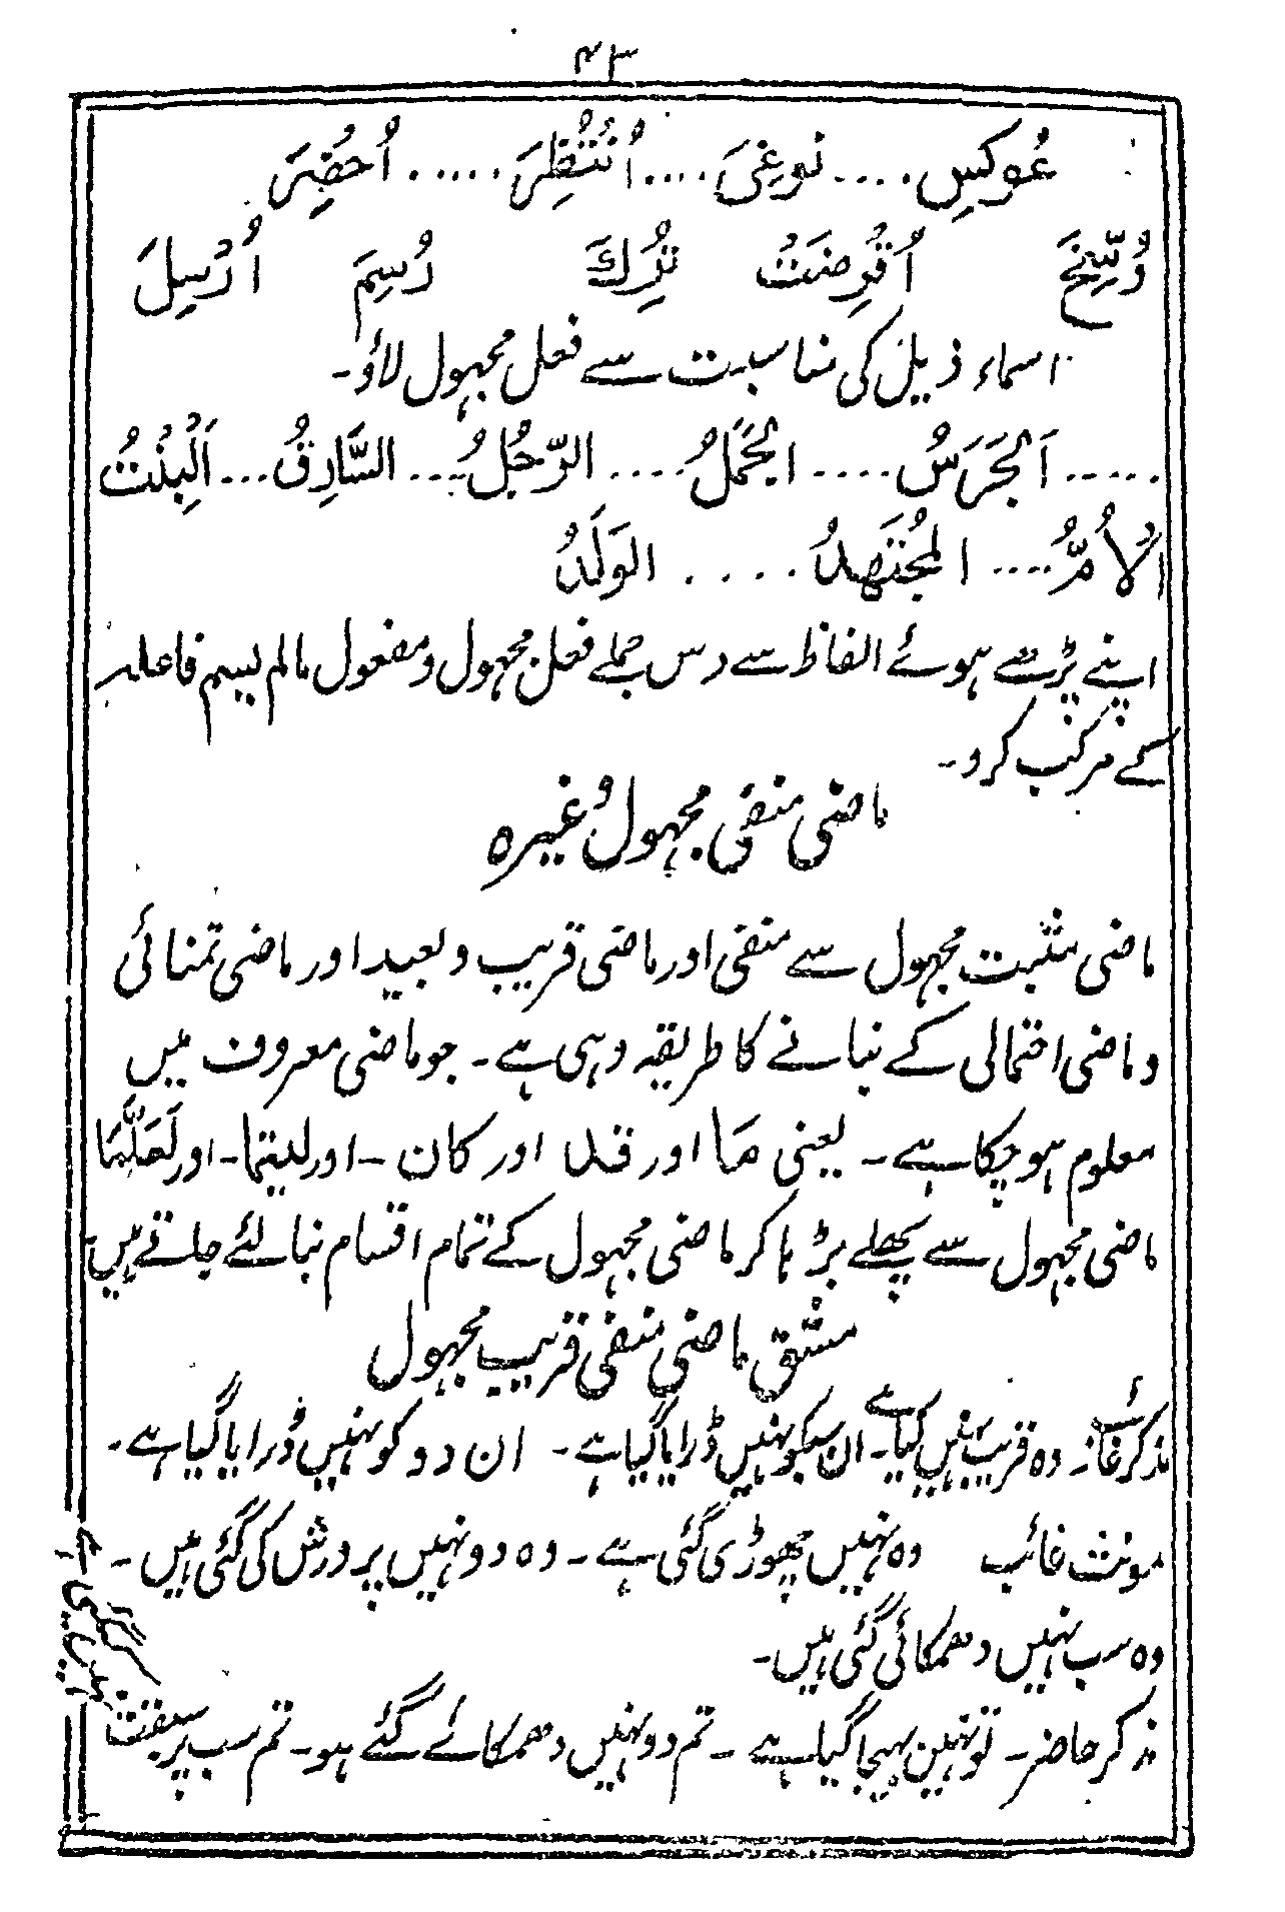 ۴۳
عُوكِسِ .... نُوغِیَ .... اُنْتُظِرَ ..... اُحضِرَ
وُسِّخَ اُقْرِضَتْ تُرِكَ رُسِمَ اُرْسِلَ
اسماء ذیل کی مناسبت سے فعل مجہول لاؤ۔
..... اَلجَرَسُ .... الجَمَلُ .... الرّجُلُ ... السَّارِقُ ... اَلْبِنْتُ
الاُمُّ .... المُجْتَهِدُ .... الوَلَدُ
اپنے پڑھے ہوئے الفاظ سے دس جملے فعل مجہول و مفعول مالم یسم فاعلہ
کے مرکب کرو۔
ماضی منفی مجہول وغیرہ
ماضی مثبت مجہول سے منفی اور ماضی قریب و بعید اور ماضی تمنائی
و ماضی احتمالی کے بنانے کا طریقہ وہی ہے۔ جو ماضی معروف میں
معلوم ہو چکا ہے۔ یعنی مَا اور قد اور کان ۔ اور لیتما ۔ اور لَعَلَّمَا
ماضی مجہول سے پہلے بڑہا کر ماضی مجہول کے تمام اقسام بنا لئے جاتے ہیں
مشق ماضی منفی قریب مجہول
مذکر غائب وہ قریب نہیں کیا گیا ہے۔ ان سبکو نہیں ڈرایا گیا ہے۔ ان دو کو نہیں ڈرایا گیا ہے۔
مونث غائب وہ نہیں چھوڑی گئی ہے۔ وہ دو نہیں پرورش کی گئی ہیں۔
وہ سب نہیں دھمکائی گئی ہیں۔
مذکر حاضر۔ تو نہیں بہیجا گیا ہے ۔ تم دو نہیں دھمکائے گئے ہو۔ تم سب پر سبقت
نہیں کی گئی ہے